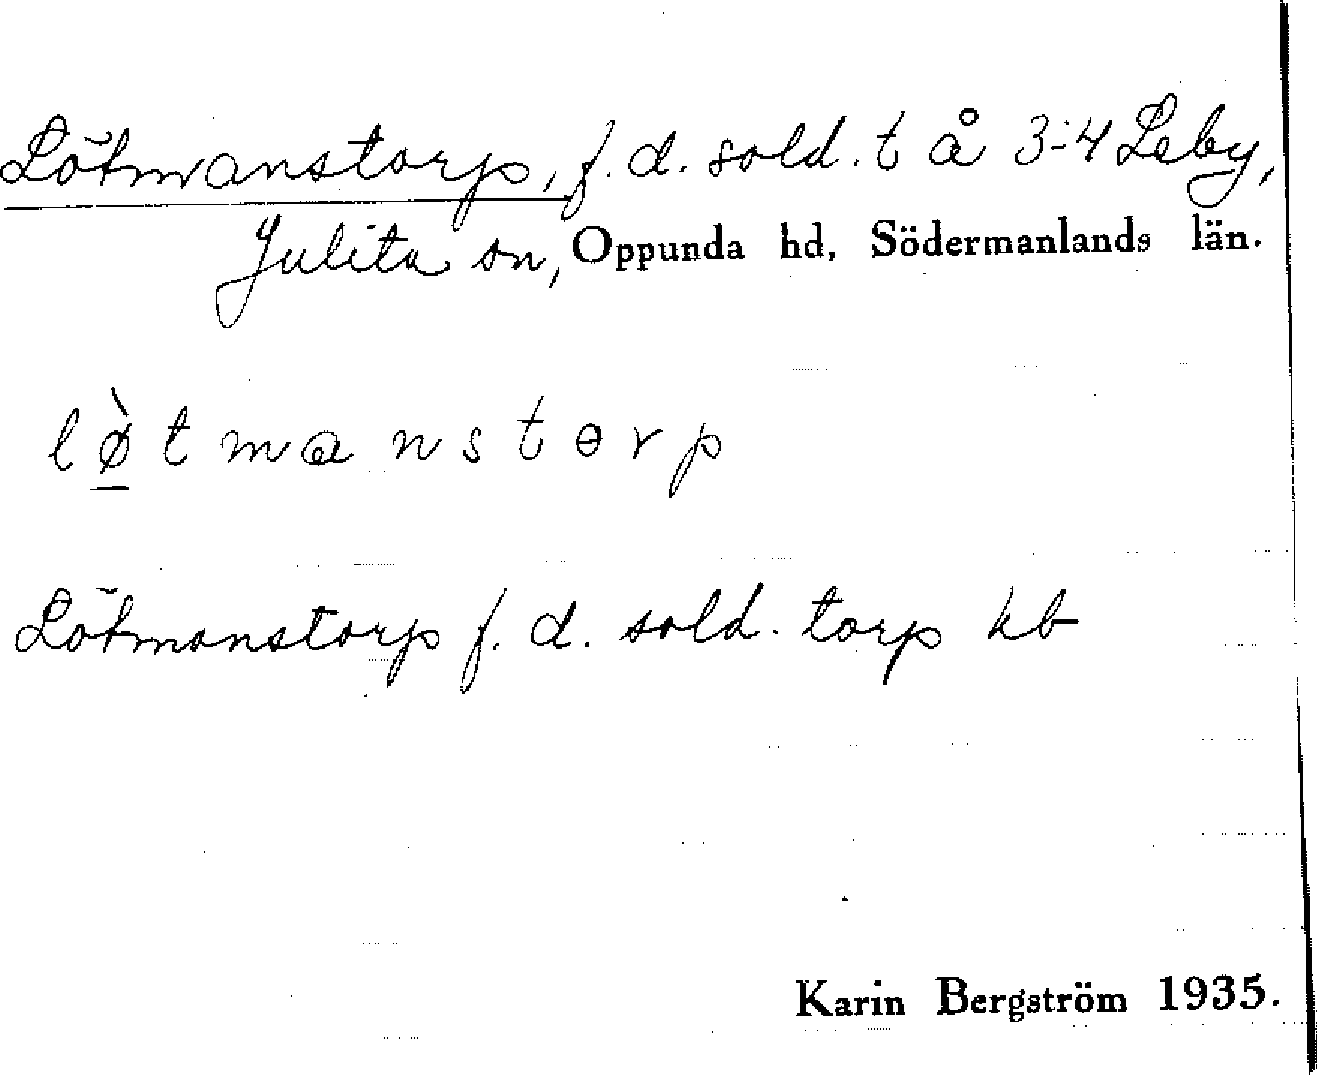 Lötmanstorp, f.d. sold. t å 3-4 Leby,
Julita sn, Oppunda hd, Södermanlands län.
lø̀tmanstɵrp
Lötmanstorp f. d. sold. torp hb
Karin Bergström 1935.